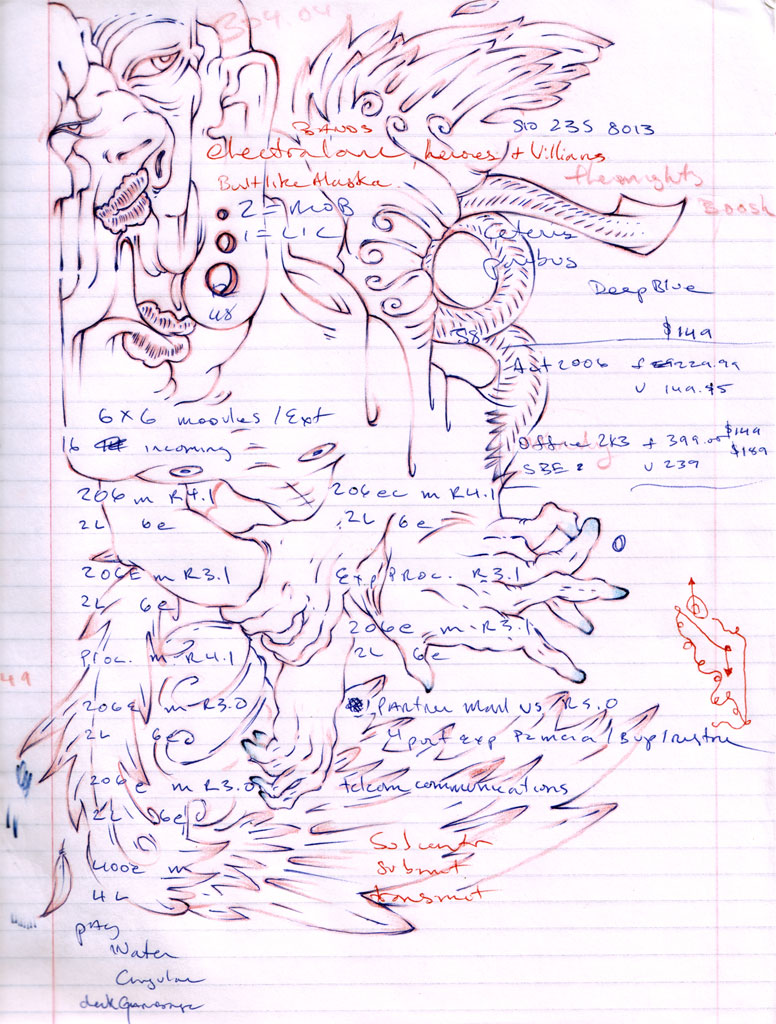 304.04
BANDS
510 235 8013
electralane, heroes + Villians
Built like Alaska
the mights
Boosh
2 = MOB
1 = LIC
Ceteris
paribus
Deep Blue
48
58
$149
Act 2006 f 229.99
v 149.95
6 x 6 modules / Ext
16 incoming
Office 2K3 f 399.00 $149
$189
SBE v 239
206 m R4.1
2L 6e
206ec m R4.1
2L 6e
206E m R3.1
2L 6e
Exp PROC. R3.1
206e m-R3.1
2L 6e
Proc. m-R4.1
49
206e m-R3.0
2L 6e
Partner mail vs R5.0
4 port exp
206e m R3.0
2L 6e
telcom communications
400e m
4L
submit
transmit
pAy
Water
Cingular